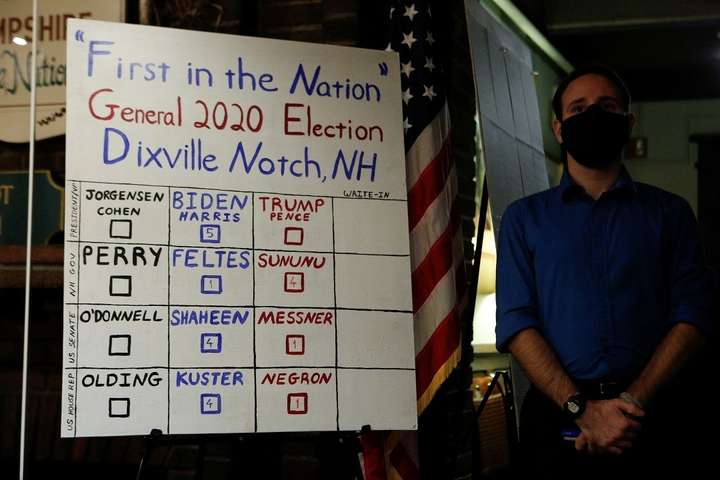 PSHIRE
"First in the Nation"
General 2020 Election
Dixville Notch, NH
WRITE-IN
PRESIDENT/VP
JORGENSEN
COHEN
BIDEN
HARRIS
5
TRUMP
PENCE
NH GOV.
PERRY
FELTES
1
SUNUNU
4
US SENATE
O'DONNELL
SHAHEEN
4
MESSNER
1
US HOUSE REP
OLDING
KUSTER
4
NEGRON
1